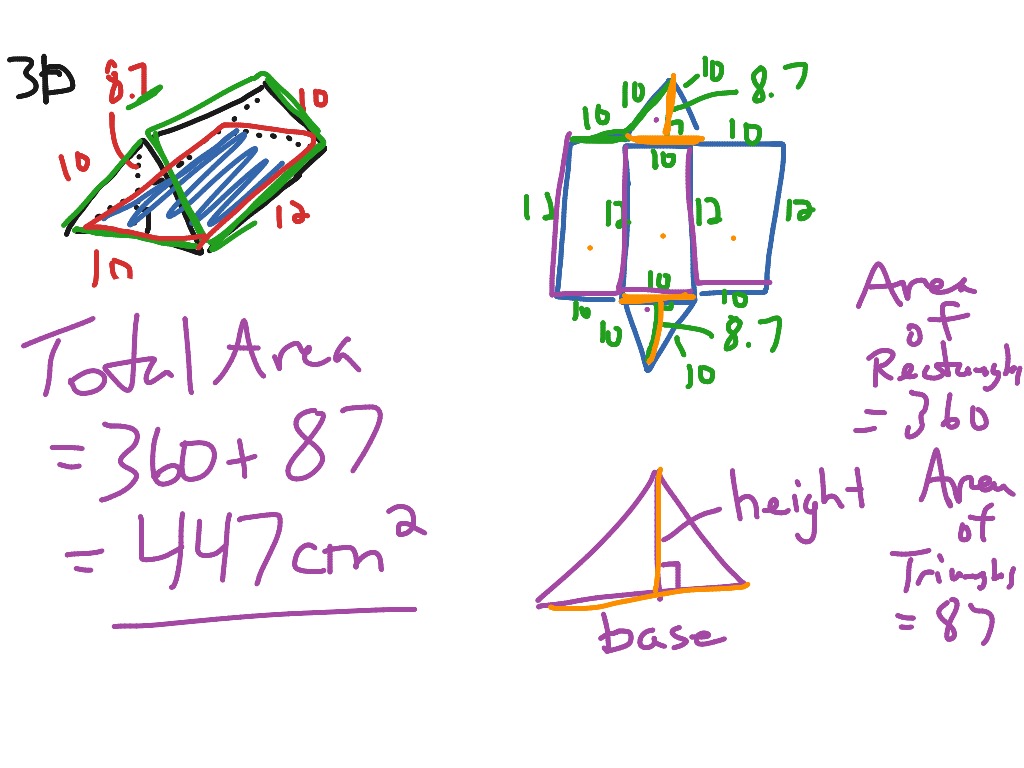 3D
8.7
10
10
12
10
10
10
8.7
10
10
10
12
12
12
12
10
10
10
10
8.7
10
Total Area
= 360 + 87
= 447 cm²
Area
of
Rectangls
= 360
Area
of
Triangls
= 87
height
base